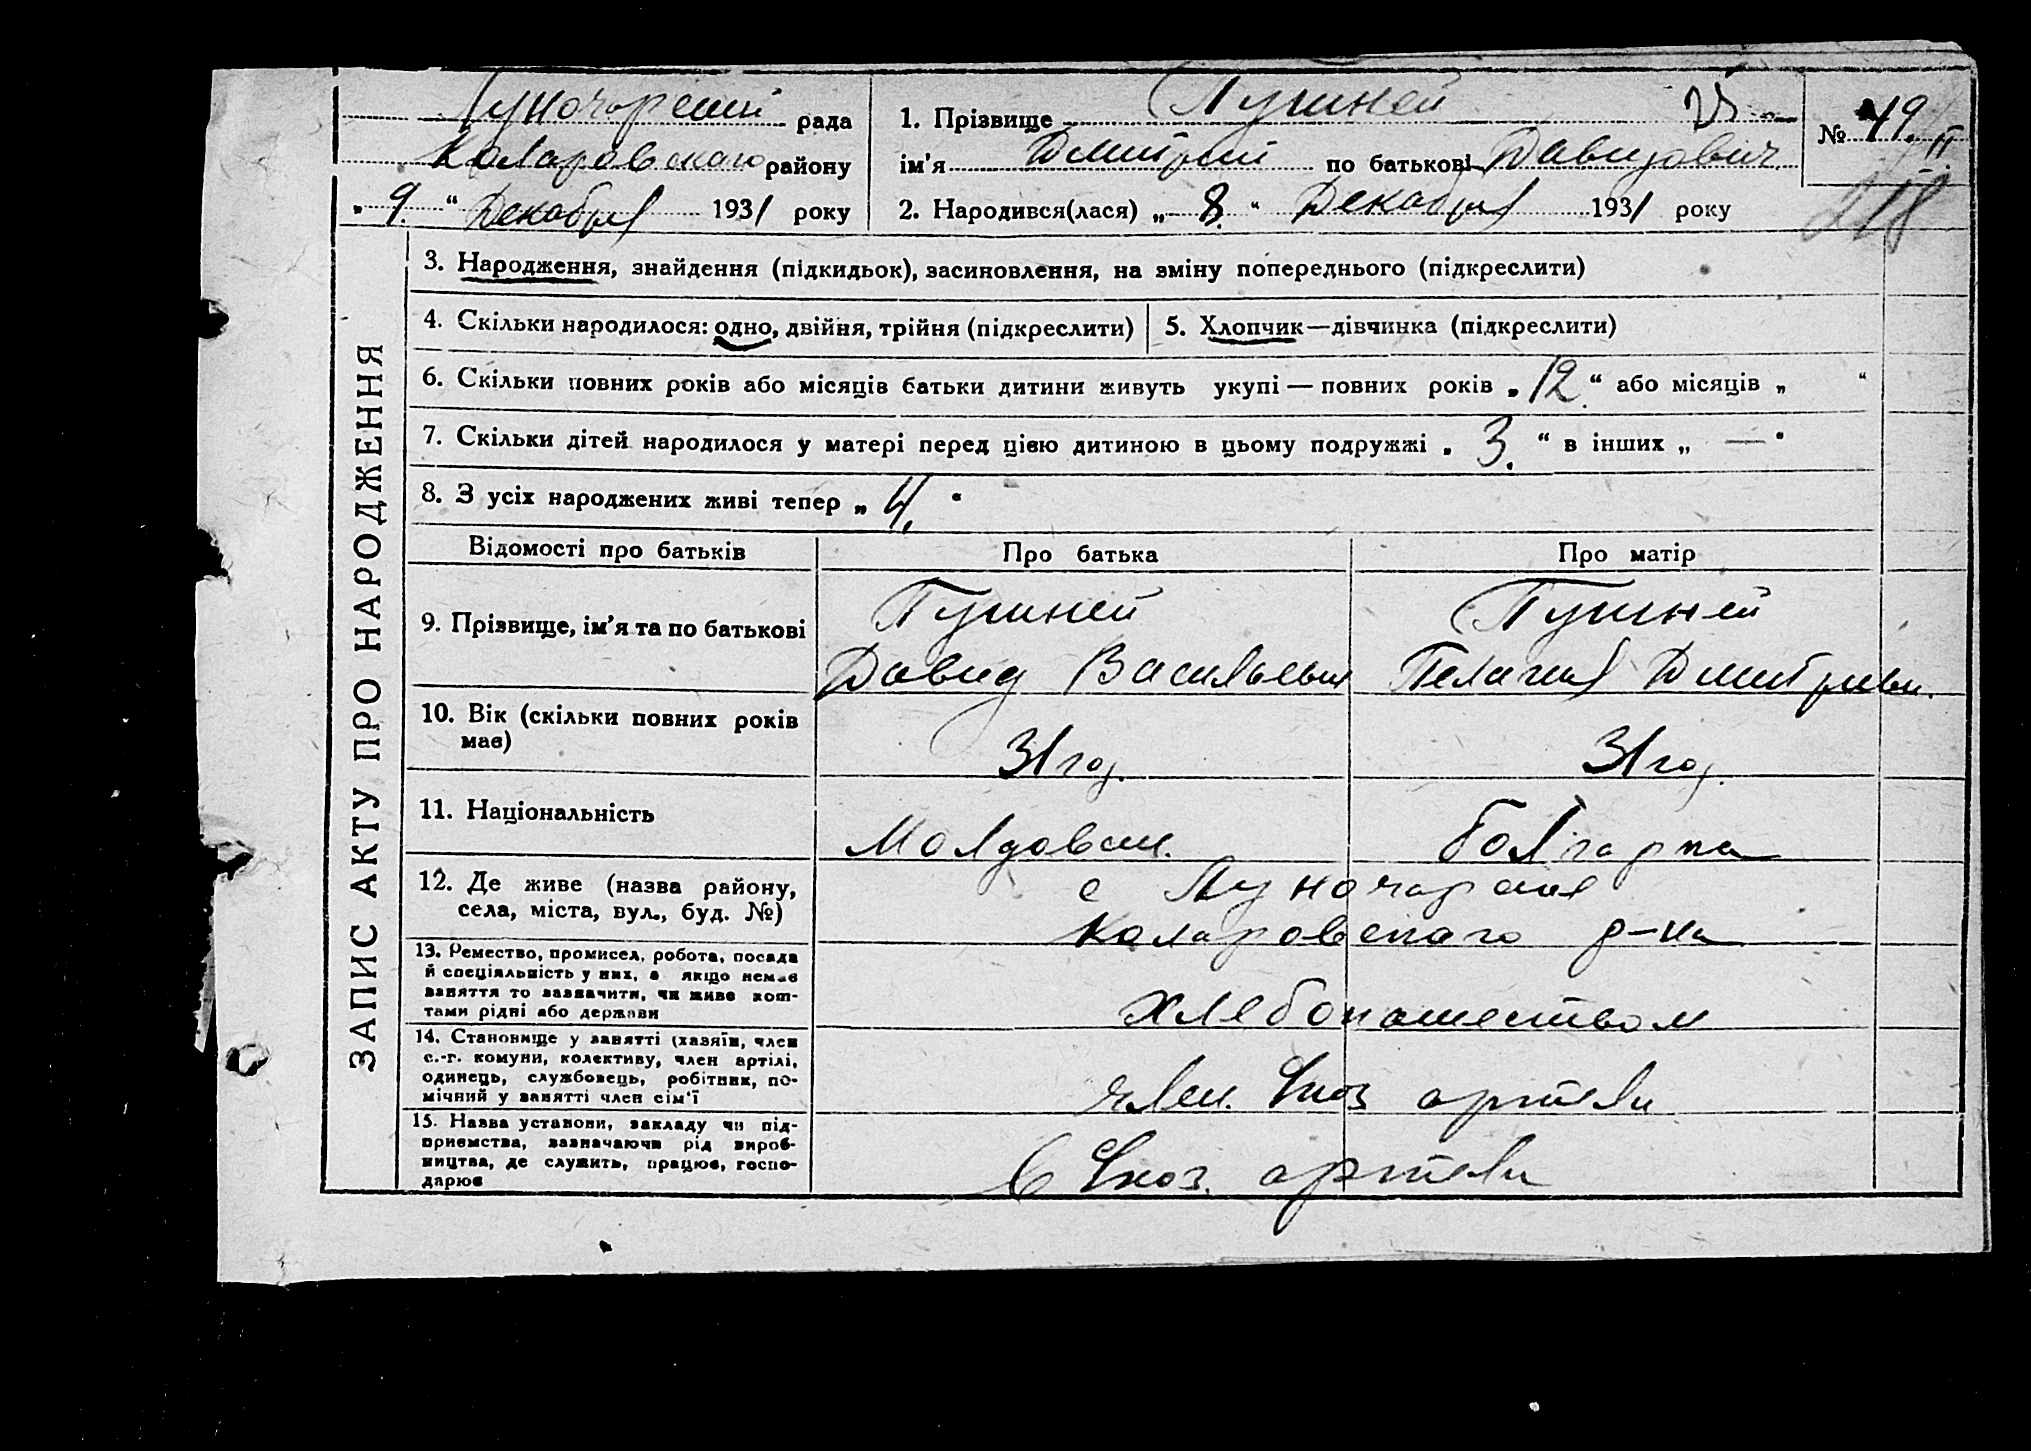 Луночарский рада
Коларовского району
„ 9. “ Декабря 1931 року
1. Прізвище Пушней
ім'я Дмитрий по батькові Давидович
2. Народився(лася) „ 8. “ Декабря 1931 року
№ 49.
II
218
ЗАПИС АКТУ ПРО НАРОДЖЕННЯ
3. Народження, знайдення (підкидьок), засиновлення, на зміну попереднього (підкреслити)
4. Скільки народилося: одно, двійня, трійня (підкреслити)
5. Хлопчик—дівчинка (підкреслити)
6. Скільки повних років або місяців батьки дитини живуть укупі — повних років „ 12 “ або місяців „ “
7. Скільки дітей народилося у матері перед цією дитиною в цьому подружжі „ 3. “ в інших „ — “
8. З усіх народжених живі тепер „ 4. “
Відомості про батьків Про батька Про матір
9. Прізвище, ім'я та по батькові
Пушней
Давид Васильевич
Пушней
Пелагия Дмитриевн.
10. Вік (скільки повних років
має)
31 год.
31 год.
11. Національність
Молдован.
болгарка
12. Де живе (назва району,
села, міста, вул., буд. №)
с Луночарск
Коларовского р-на
13. Ремество, промисел, робота, посада
й спеціяльність у них, а якщо немає
заняття то зазначити, чи живе кош-
тами рідні або держави
хлебопашеством
14. Становище у занятті (хазяїн, член
с.-г. комуни, колективу, член артілі,
одинець, службовець, робітник, по-
мічний у занятті член сім'ї
член. артели
15. Назва установи, закладу чи під-
приємства, зазначаючи рід вироб-
ництва, де служить, працює, госпо-
дарює
в артели